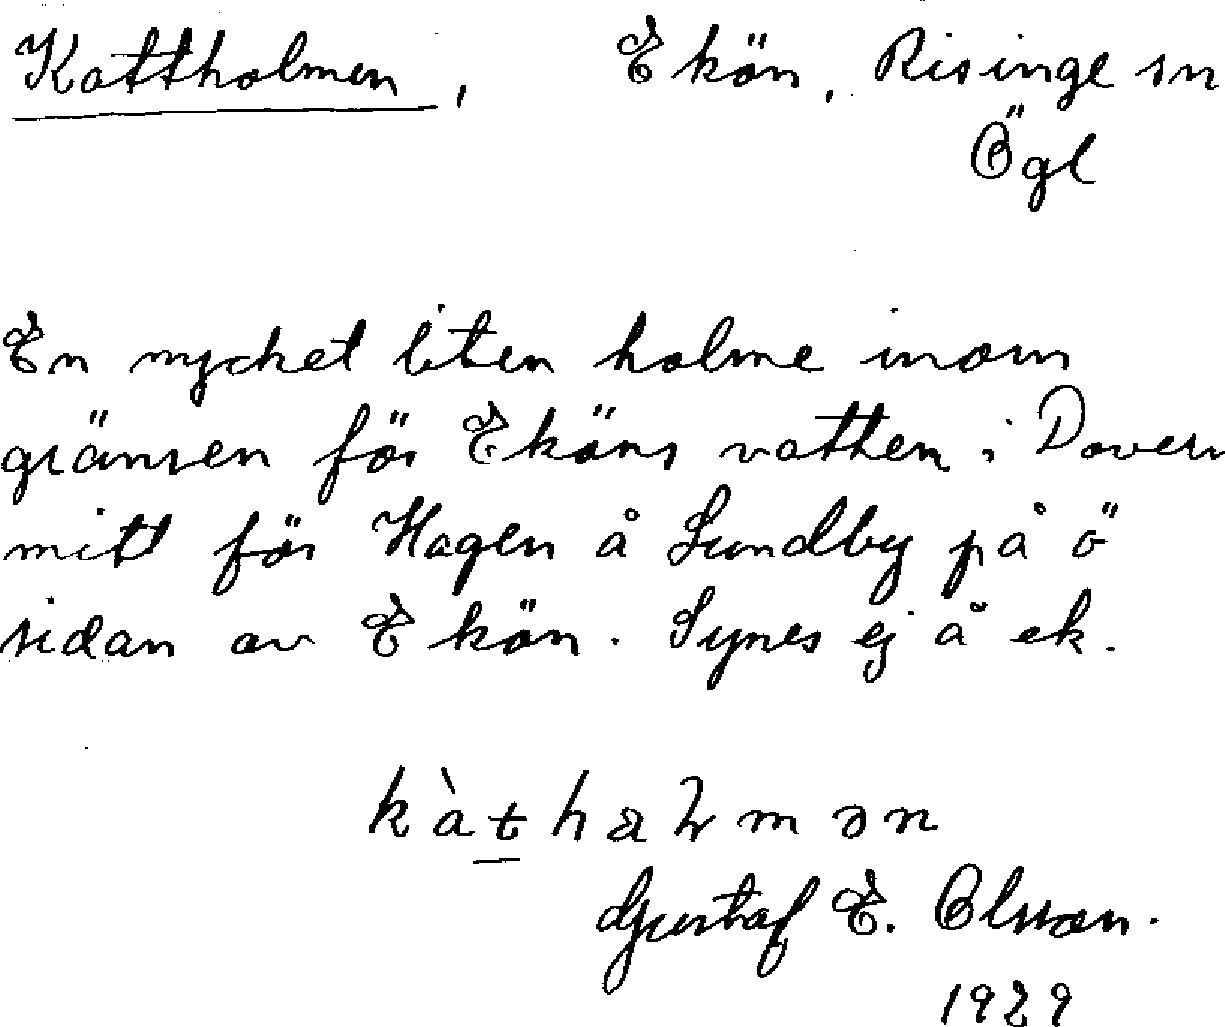 Kattholmen, Ekön, Risinge sn
Ögl
En mycket liten holme inom
gränsen för Eköns vatten i Dovern
mitt för Hagen å Lundby på ö
sidan av Ekön. Synes ej å ek.
kàthalmən
Gustaf E. Olsson.
1929